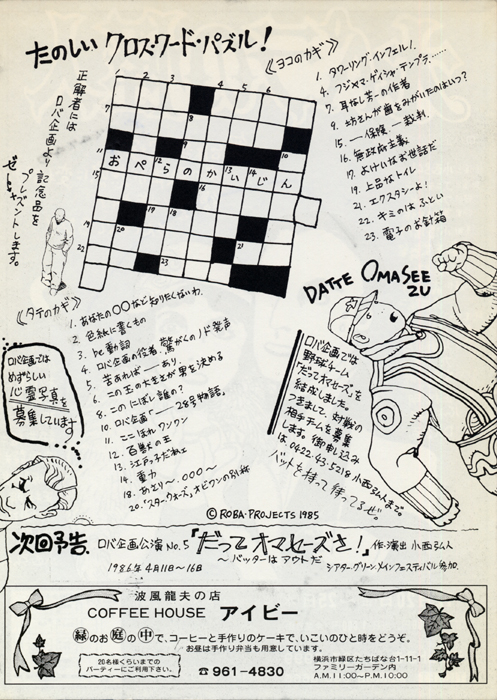 たのしい クロス・ワード・パズル!
正解者には
ロバ企画より記念品を
プレズントします。
ぜっ
《ヨコのカギ》
1. タワーリング・インフェルノ
4. フジヤマ・ゲイシャ・テンプラ……
7. 耳なし芳一の作者
9. 坊さんが歯をみがいたのはいつ?
15. ―保護、―裁判。
16. 無政府主義
17. よけいなお世話だ
19. 上品なトイレ
21. エクスタシーよ!
22. キミのは ふとい
23. 電子のお針箱
1 2 3 4 5 6
7 8
9 10
11 おぺらのかいじん 12 13 14
15 16
17 18 19
20 21
22 23
《タテのカギ》
1. あなたの○○など知りたくないわ。
2. 色紙に書くもの
3. be動詞
4. ロバ企画の役者、驚がくのノド発声
5. 苦あれば―あり。
6. この王の大きさが男を決める
8. このにぼし誰の?
10. ロバ企画「――28号物語。
11. ここほれワンワン
12. 百獣の王
13. 江アっ子だねェ
14. 重力
18. あとり~.000~
20. 「スター・ウォーズ」オビワンの別称
ロバ企画では
めずらしい
心霊写真を
募集しています
DATTE OMASEE
ZU
ロバ企画では
野球チーム
「だってオマセーズ」を
結成しました。
つきまして、対戦の
相手チームを募集
します。御申し込み
は0422.43.5218小西弘人まで。
バットを持って待ってるぜ。
© ROBA・PROJECTS 1985
次回予告. ロバ企画公演 No.5 「だってオマセーズさ!」 作・演出 小西弘人
~バッターはアウトだ
1986年4月11日~16日 シアターグリーン,メインフェスティバル参加.
波風龍夫の店
COFFEE HOUSE アイビー
緑のお庭の中で、コーヒーと手作りのケーキで、いこいのひと時をどうぞ。
お昼は手作り弁当も用意しています。
20名様くらいまでの
パーティーにご利用下さい。
☎ 961-4830
横浜市緑区たちばな台1-11-1
ファミリーガーデン内
A.M.11:00〜P.M.10:00